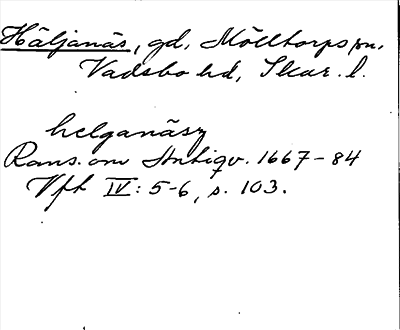 Häljanäs, gd, Mölltorps sn.
Vadsbo hd, Skar. l.
helganäsz
Rans. om Antiqv. 1667-84
Vft IV: 5-6, s. 103.